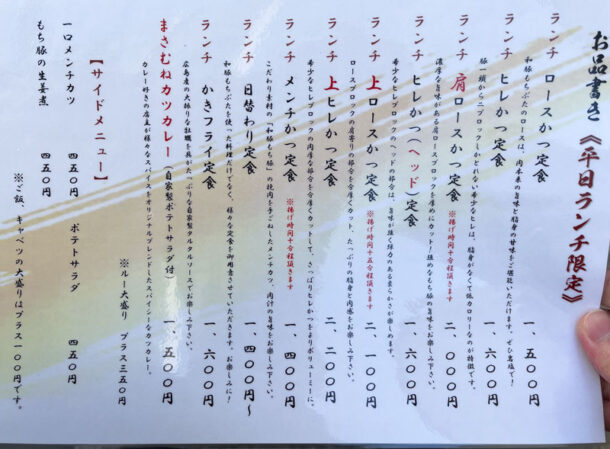 お品書き《平日ランチ限定》
ランチ ロースかつ定食 一、五〇〇円
和豚もちぶたのロースは、肉本来の旨味と脂身の甘味をご堪能いただけます。ぜひお塩で!
ランチ ヒレかつ定食 一、六〇〇円
豚一頭から二ブロックしかとれない希少なヒレは、脂身がなくて低カロリーなのが特徴です。
ランチ 肩ロースかつ定食 ※揚げ時間十分程頂きます 二、〇〇〇円
濃厚な旨味がある肩ロースブロックを厚めにカット!
ランチ ヒレかつ(ヘッド)定食 一、六〇〇円
希少なヒレブロックのヘッドの部分は、旨味が強く弾力のある柔らかさが楽しめます。
ランチ 上ロースかつ定食 ※揚げ時間十五分程頂きます 二、一〇〇円
ロースブロックの肩寄りの部分を分厚くカット、たっぷりの脂身と肉感をお楽しみ下さい。
ランチ 上ヒレかつ定食 二、二〇〇円
希少なヒレブロックの肉厚な部分を分厚くカットして、さっぱりヒレかつをよりボリューミーに。
ランチ メンチかつ定食 ※揚げ時間十分程頂きます 一、四〇〇円
こだわり素材の「和豚もち豚」の挽肉を手ごねしたメンチカツ、肉汁の旨味をお楽しみ下さい。
ランチ 日替わり定食 一、四〇〇円~
和豚もちぶたを使った料理だけでなく、様々な定食を御用意させていただきます。お楽しみに!
ランチ かきフライ定食 一、六〇〇円
広島産の大振りな牡蠣を具がたっぷりな自家製タルタルソースでお楽しみ下さい。
まさむねカツカレー(自家製ポテトサラダ付) 一、五〇〇円
カレー好きの店主が様々なスパイスをオリジナルブレンドしたスパイシーなカツカレー。
※ルー大盛り プラス三五〇円
【サイドメニュー】
一口メンチカツ 四五〇円 ポテトサラダ 四五〇円
もち豚の生姜煮 四五〇円
※ご飯、キャベツの大盛りはプラス一〇〇円です。